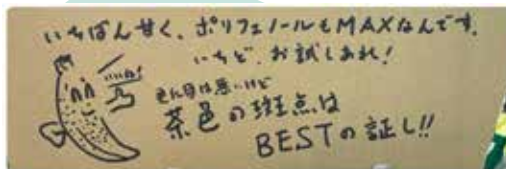 いちばん甘く、ポリフェノールもMAXなんです。
いちど、お試しあれ!
見た目は悪いけど
茶色の斑点は
BESTの証し!!